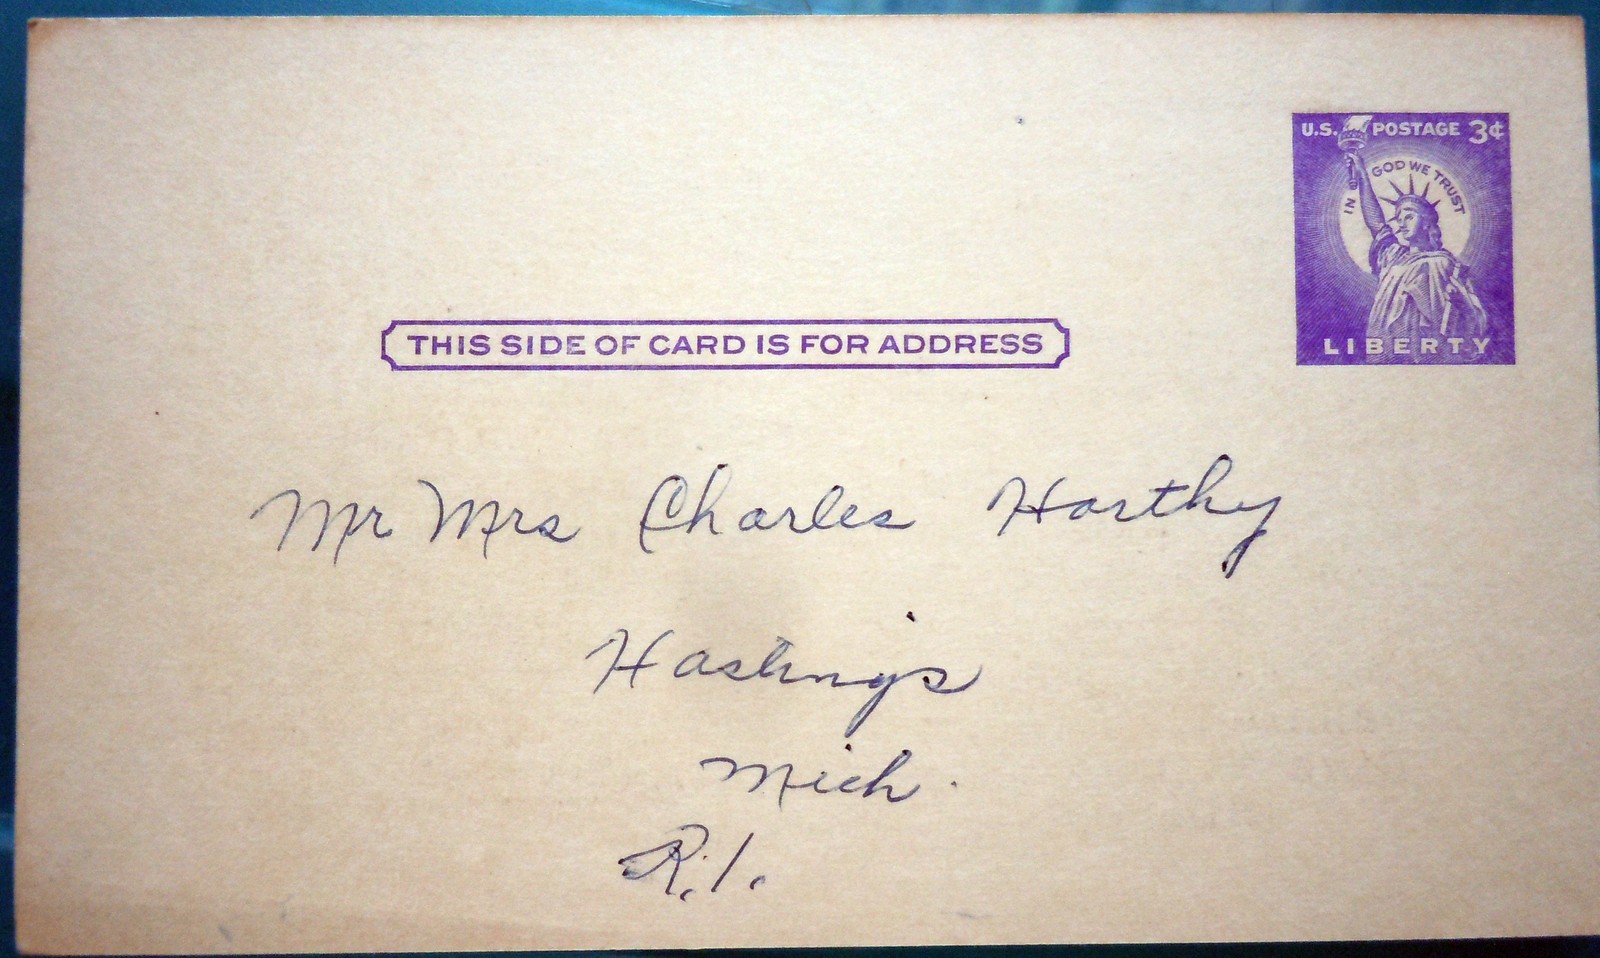 U.S. POSTAGE 3¢
IN GOD WE TRUST
LIBERTY
THIS SIDE OF CARD IS FOR ADDRESS
Mr Mrs Charles Horthy
Hastings
Mich.
R.1.